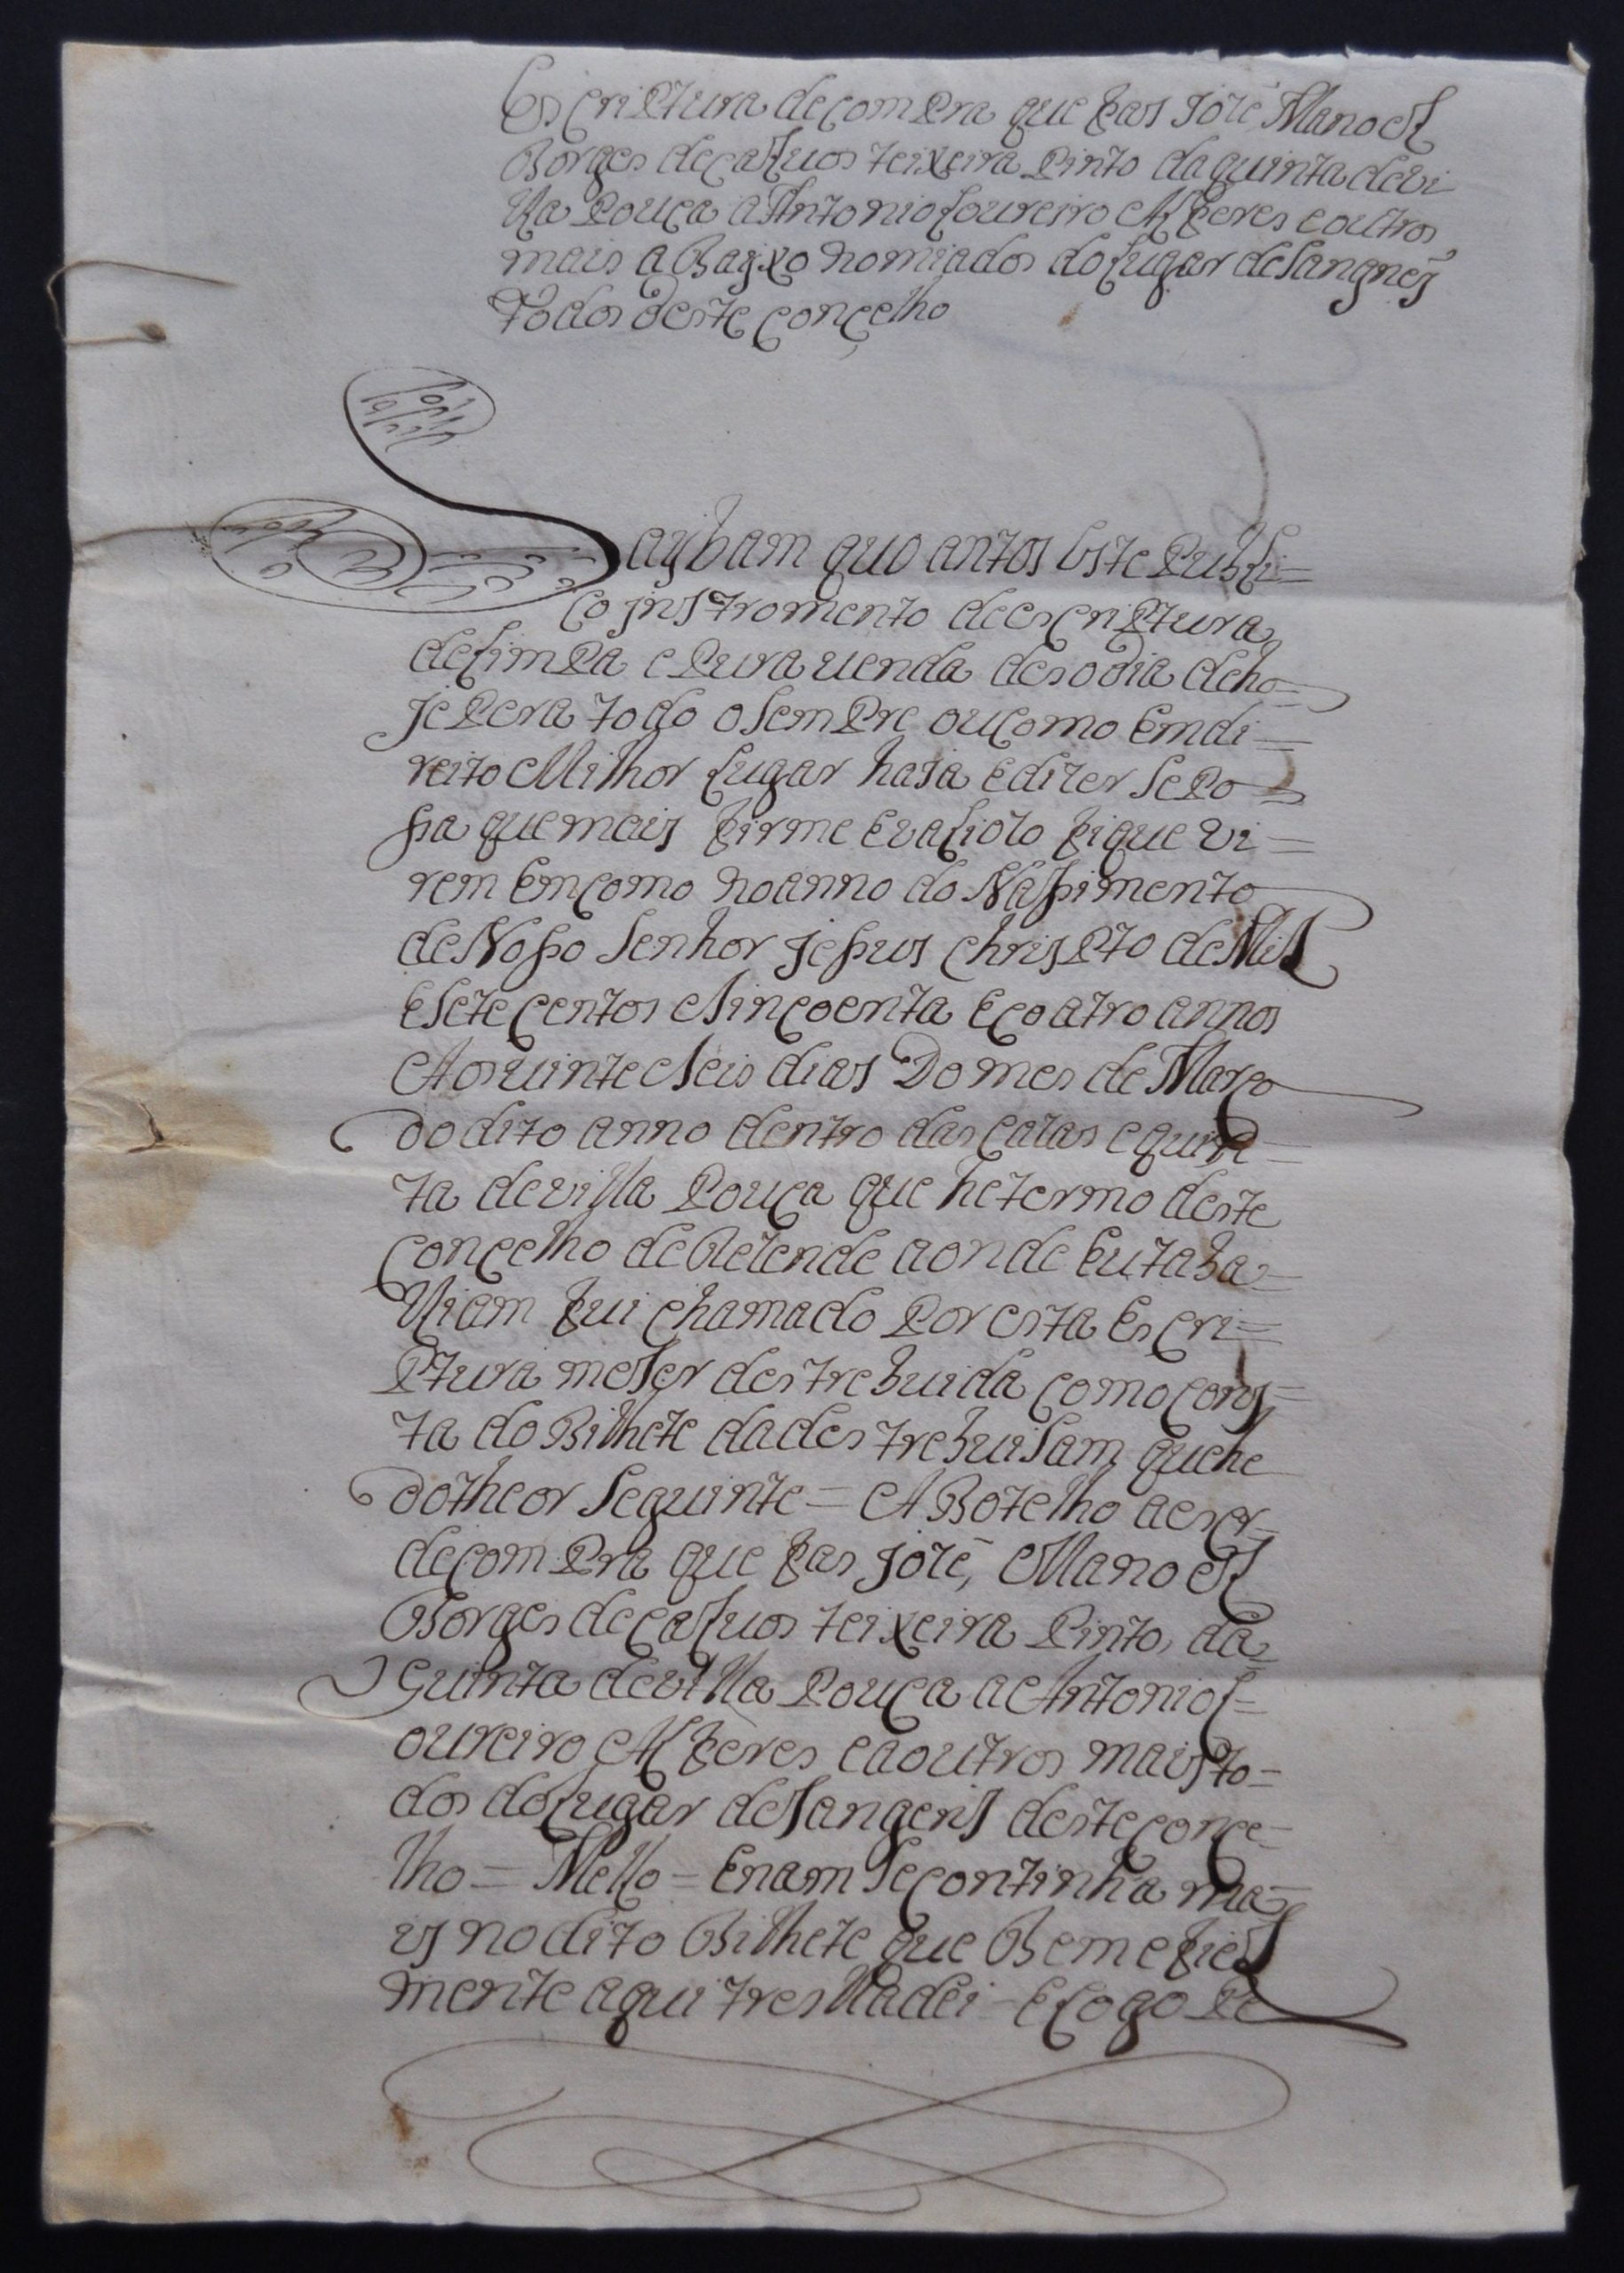 EscriPtura de comPra que fas Jozé Manoel
Borges decaluos teixeira Pinto daquinta devi
lla Pouca a Antonio Loureiro Alferes e outros
mais aBaixo nomiados dolugar de Sangnes
todos deste concelho
Saybam quoantos Este Publi=
co jnstromento de escriPtura
delimPa e Pura uenda desodia deho=
je Pera todo o semPre ou como Emdi=
reito Milhor lugar haja Edizer sePo=
ssa quemais firme Evaliozo fique vi=
rem Emcomo no anno do Nassimento
de Nosso Senhor jessus chrisPto de Mil
Esete centos e Sincoenta Ecoatro annos
Aos vinte e Seis dias Do mes de Março
do dito anno dentro das cazas e quin=
ta de villa Pouca que he termo deste
concelho de Rezende aonde Eu taba=
lliam fui chamado Por esta Escri=
Ptura meser destrebuida como cons=
ta do Bilhete da destrebuisam que he
do theor seguinte = A Botelho a escr
de comPra que fas jozé, Manoel
Borges decaluos teixeira Pinto, da
Quinta devilla Pouca a Antonio L=
oureiro Alferes e a outros mais to=
dos do lugar de Sangens deste conce=
lho = Mello = Enam se continha ma=
is no dito Bilhete que Bem e fiel
mente aqui tresladei - E logo Pe